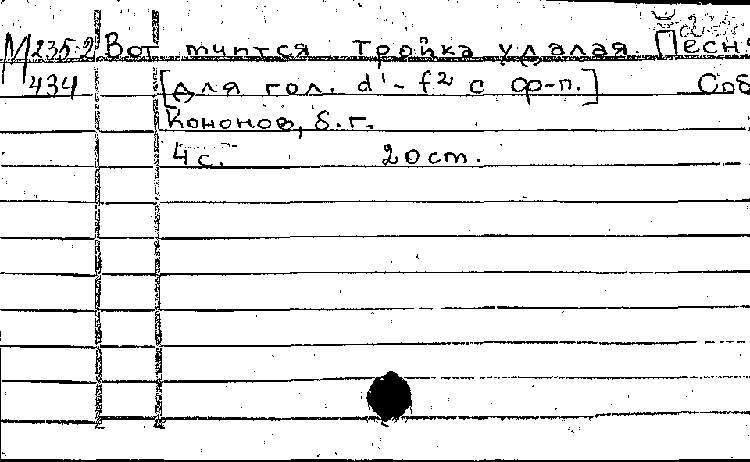 М 235-2 Вот мчится тройка удалая. Песня
434 [Для гол. d¹ - f² с ф-п.] Соб
Кононов, б.г.
4 с. 20 cm.